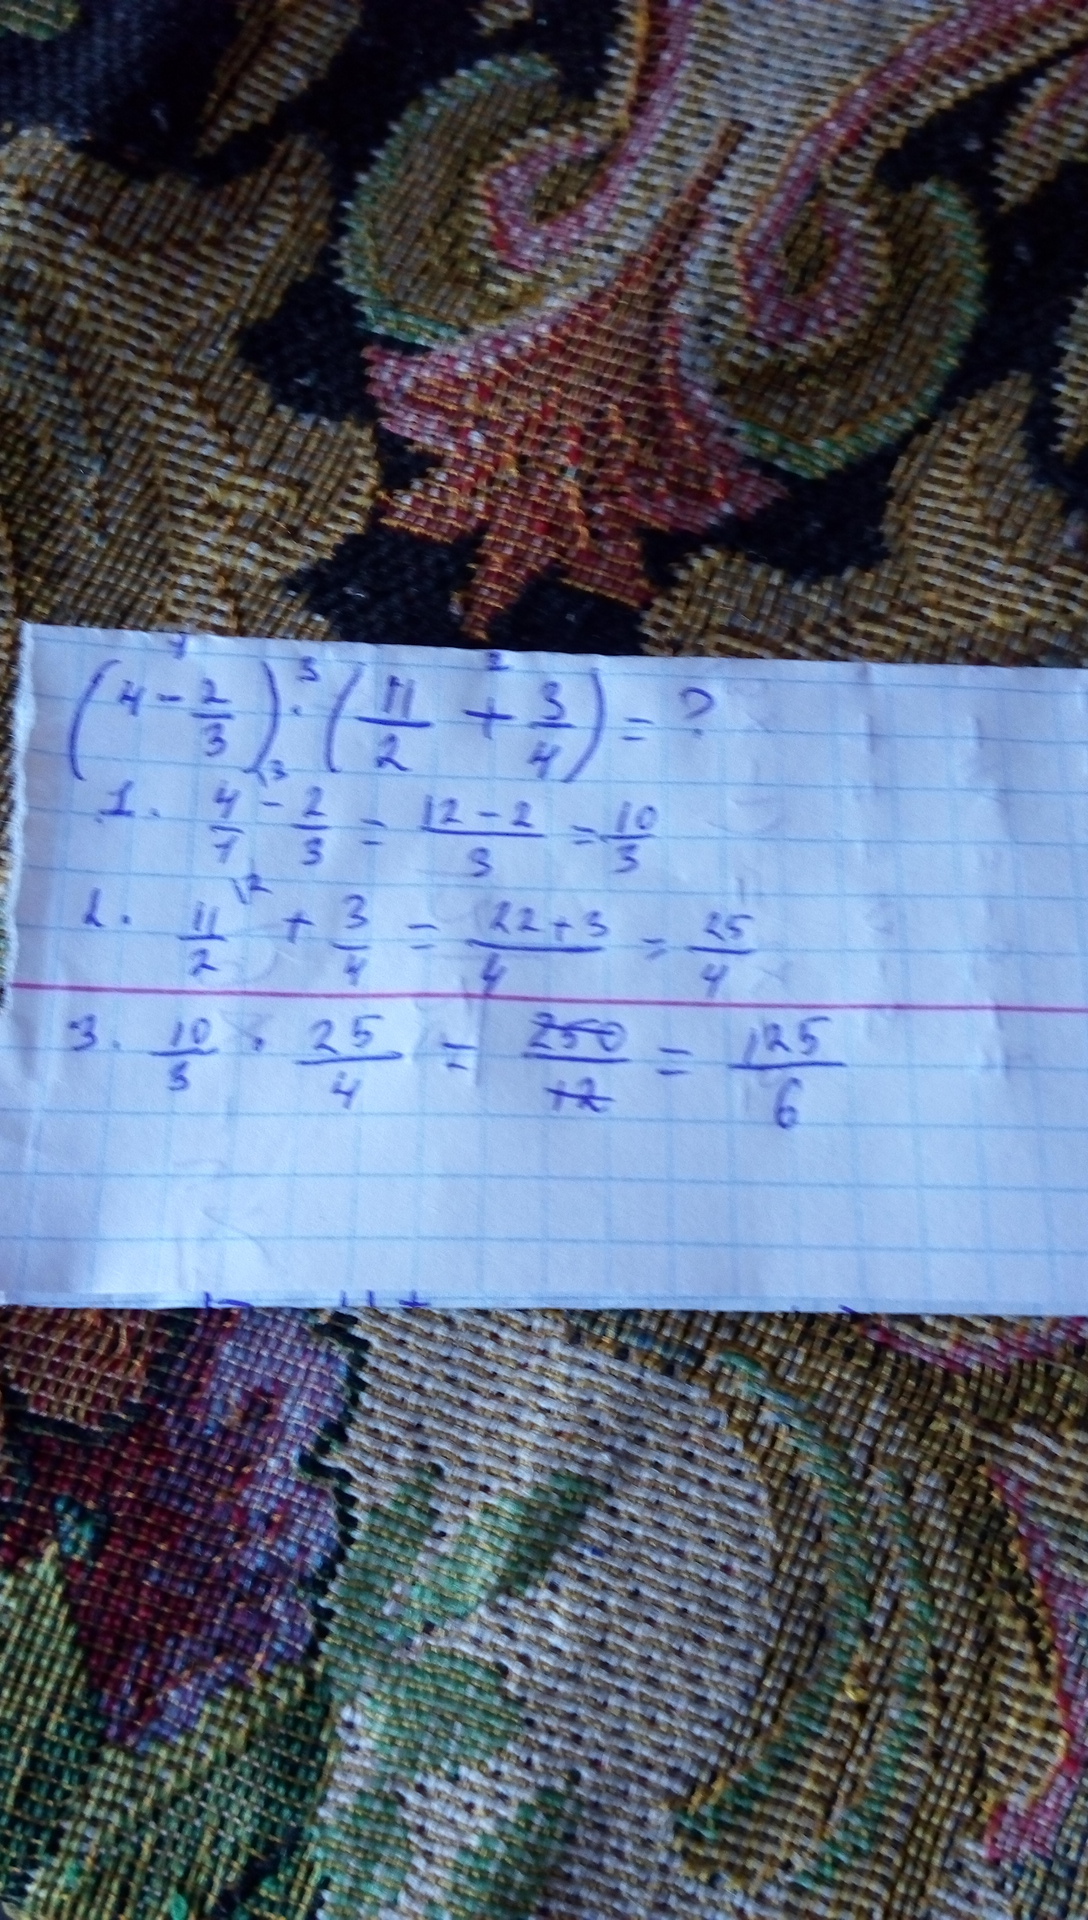 (4 - 2/3) ·³ (11/2 +² 3/4) = ?
1. 4/1 \3 - 2/3 = 12-2/3 = 10/3
2. 11/2 \2 + 3/4 = 22+3/4 = 25/4
3. 10/3 · 25/4 = 250/12 = 125/6